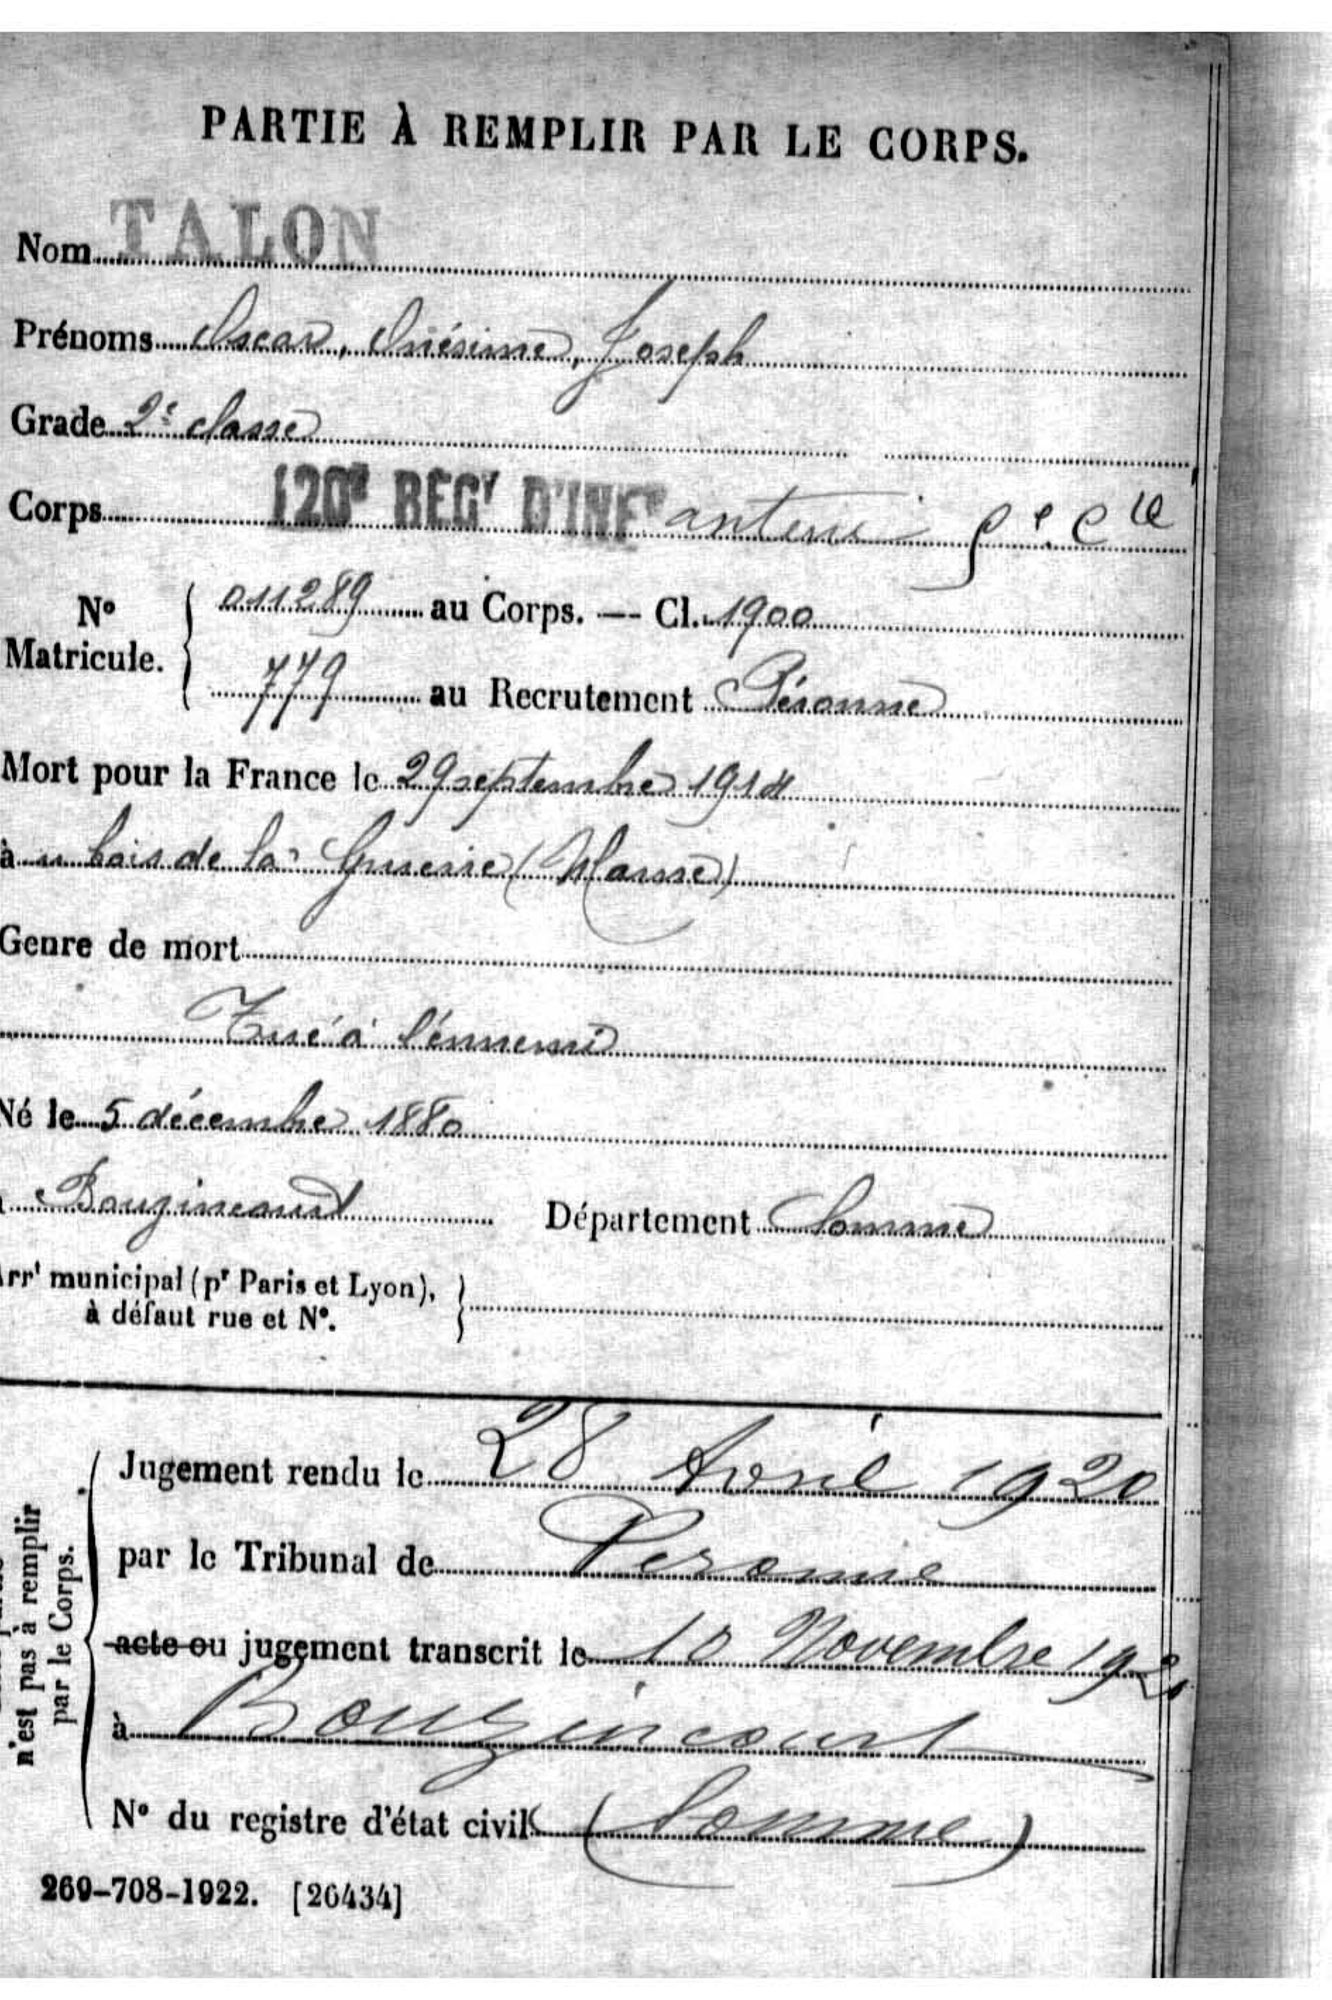 PARTIE À REMPLIR PAR LE CORPS.
Nom TALON
Prénoms Oscar, Onésime, Joseph
Grade 2e classe
Corps 120e REGt D'INFanterie Cie
No Matricule. 011289 au Corps. — Cl. 1900
779 au Recrutement Péronne
Mort pour la France le 29 septembre 1914
à u bois de la Gruerie (Marne)
Genre de mort
Tué à l'ennemi
Né le 5 décembre 1880
Bouzincourt Département Somme
Arrt municipal (pr Paris et Lyon),
à défaut rue et No.
Jugement rendu le 28 Avril 1920
par le Tribunal de Peronne
acte ou jugement transcrit le 10 Novembre
à Bouzincourt
No du registre d'état civil (Somme)
n'est pas à remplir
par le Corps.
269-708-1922. [26434]